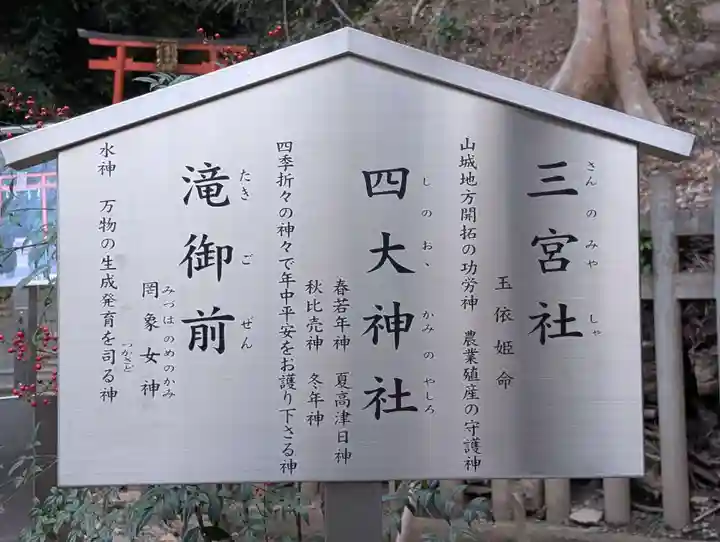 三宮社
さんのみや しゃ
玉依姫命
山城地方開拓の功労神 農業殖産の守護神
四大神社
しのおゝかみのやしろ
春若年神 夏高津日神
秋比売神 冬年神
四季折々の神々で年中平安をお護り下さる神
滝御前
たきごぜん
罔象女神
みづはのめのかみ
水神 万物の生成発育を司る神
つかさど